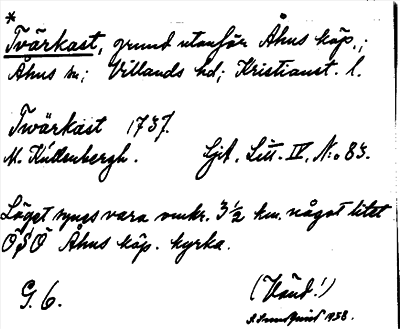 *
Tvärkast, grund utanför Åhus köp.;
Åhus sn; Villands hd; Kristianst. l.
Twärkast 1737.
M. Kullenbergh. Sjk. Litt. IV, N:o 83.
Läget synes vara omkr. 3½ km. något litet
ÖSÖ Åhus köp. kyrka.
G. 6. (Vänd!)
1938.